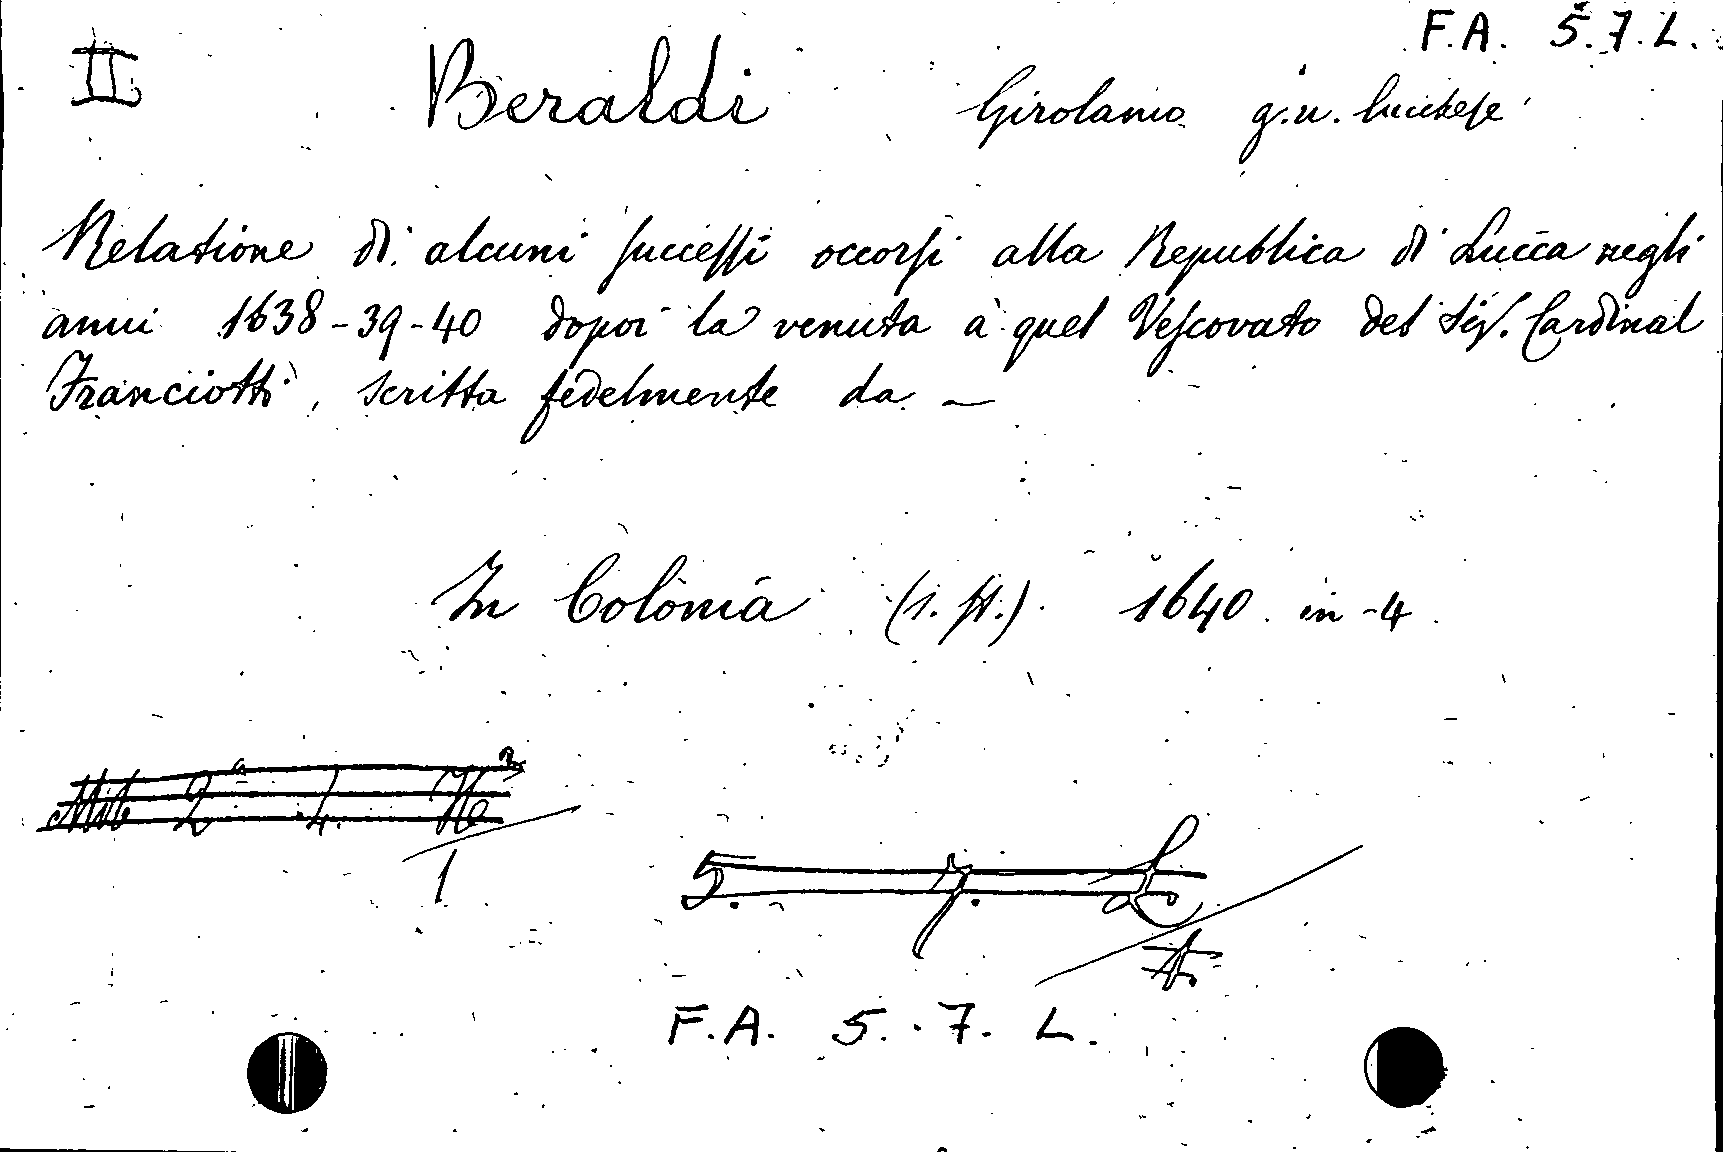 F.A. 5.7.L.
II Beraldi Girolamo g.u. lucchese
Relatione di alcuni successi occorsi alla Republica di Lucca negli
anni 1638-39-40 dopoi la venuta à quel Vescovato del Sig. Cardinal
Franciotti, scritta fedelmente da —
In Colonia (s. st.). 1640 in-4
2ª 4.
1
5. 7. L
F.A. 5. 7. L.